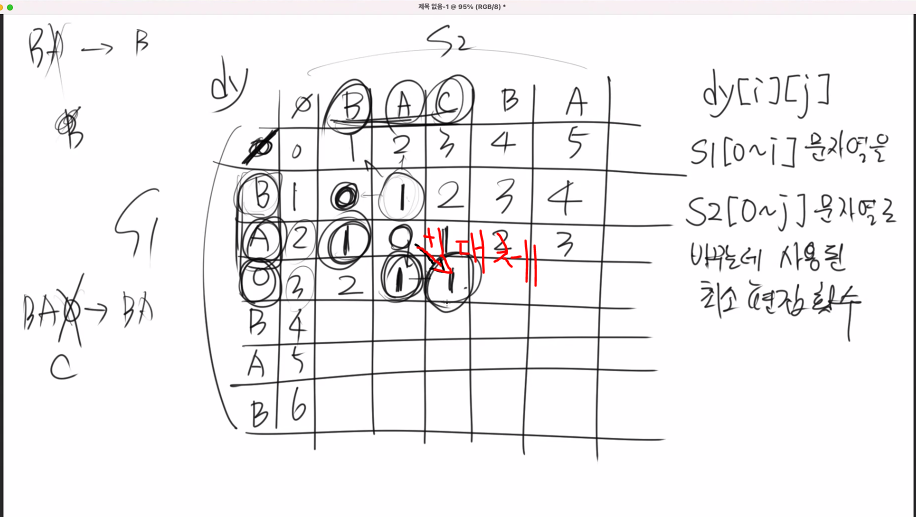 제목 없음-1 @ 95% (RGB/8) *
BA → B
B
S2
dy
ø B A C B A
0 1 2 3 4 5
B 1 0 1 2 3 4
A 2 1 0 1 2 3
3 2 1 1
B 4
A 5
B 6
S1
대체
BA → BA
C
dy[i][j]
S1[0~i] 문자열을
S2[0~j] 문자열로
바꾸는데 사용된
최소 편집 횟수